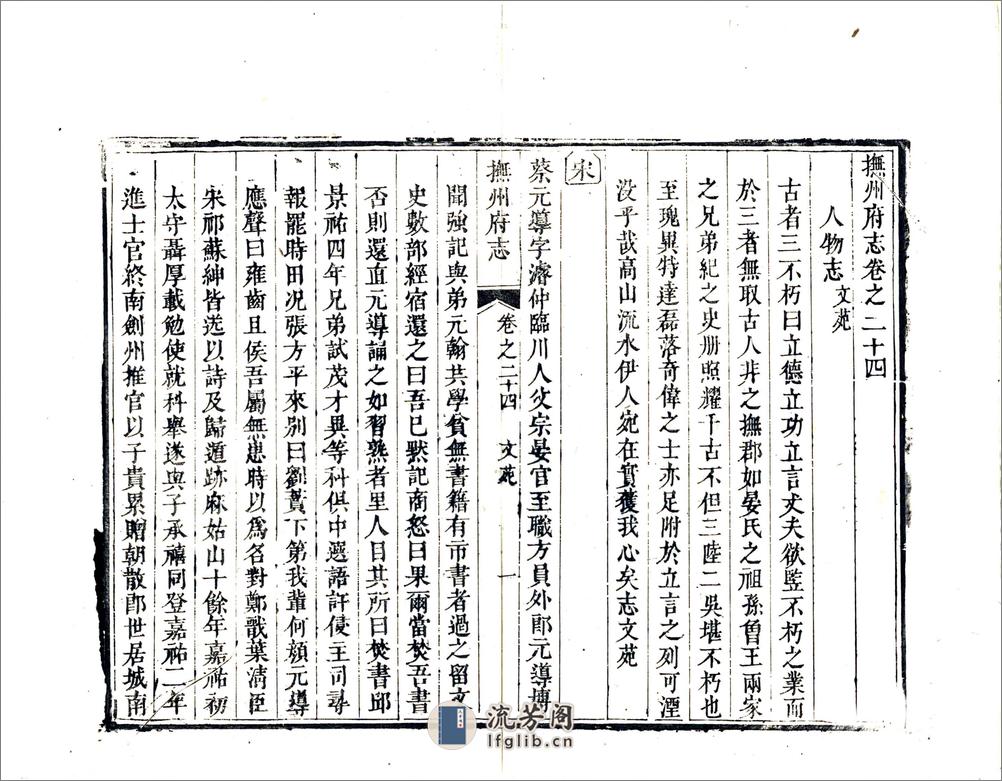 撫州府志卷之二十四
人物志 文苑
古者三不朽曰立德立功立言丈夫欲豎不朽之業而
於三者無取古人非之撫郡如晏氏之祖孫曾王兩家
之兄弟紀之史册照耀千古不但三陸二吳堪不朽也
至瑰異特達磊落奇偉之士亦足附於立言之列可湮
没乎哉高山流水伊人宛在實獲我心矣志文苑
宋
蔡元導字濬仲臨川人父宗晏官至職方員外郎元導博
撫州府志 卷之二十四 文苑 一
聞強記與弟元翰共學貧無書籍有市書者過之留文
史數部經宿還之曰吾已默記商怒曰果爾當焚吾書
否則還直元導誦之如習熟者里人目其所曰焚書邱
景祐四年兄弟試茂才異等科俱中選語訐侵主司尋
報罷時田况張方平來別曰劉蕡下第我輩何顔元導
應聲曰雍齒且侯吾屬無患時以爲名對鄭戩葉清臣
宋祁蘇紳皆送以詩及歸遁跡麻姑山十餘年嘉祐初
太守聶厚載勉使就科舉遂與子承禧同登嘉祐二年
進士官終南劍州推官以子貴累贈朝散郎世居城南
流芳阁
lfglib.cn